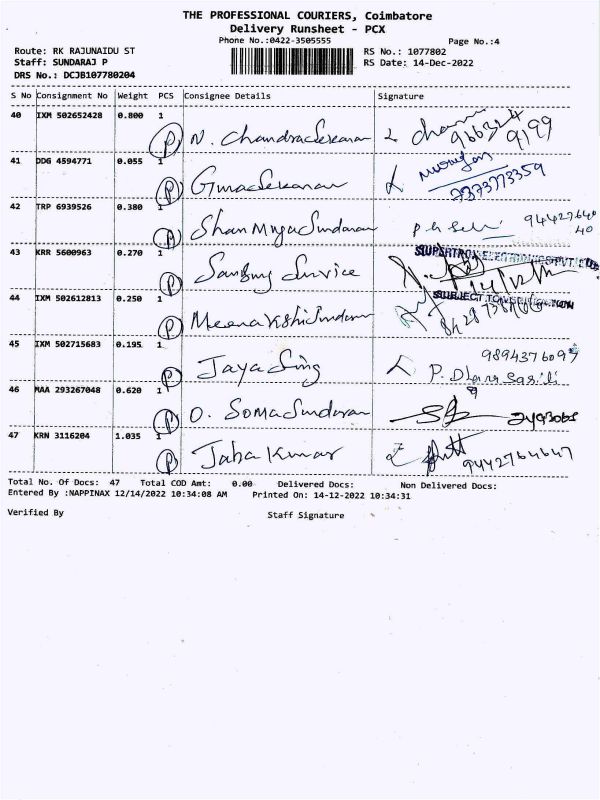 THE PROFESSIONAL COURIERS, Coimbatore
Delivery Runsheet - PCX
Phone No.:0422-3505555
Page No.:4
Route: RK RAJUNAIDU ST
RS No.: 1077802
Staff: SUNDARAJ P
RS Date: 14-Dec-2022
DRS No.: DCJB107780204
S No Consignment No Weight PCS Consignee Details Signature
40 IXM 502652428 0.800 1
P N. Chandrasekaran
9199
41 DDG 4594771 0.055 1
P Gunasekaran Murugan
7373773359
42 TRP 6939526 0.380 1
P Shanmugasundaram 9442764040
43 KRR 5600963 0.270 1
P Samsung Service 14/12/22
44 IXM 502612813 0.250 1
P Meenakshisundaram
45 IXM 502715683 0.195 1
P Jaya Sing
46 MAA 293267048 0.620 1
P O. Somasundaram
47 KRN 3116204 1.035 1
P Jaba Kumar 9442764647
Total No. Of Docs: 47 Total COD Amt: 0.00 Delivered Docs: Non Delivered Docs:
Entered By :NAPPINAX 12/14/2022 10:34:08 AM Printed On: 14-12-2022 10:34:31
Verified By Staff Signature